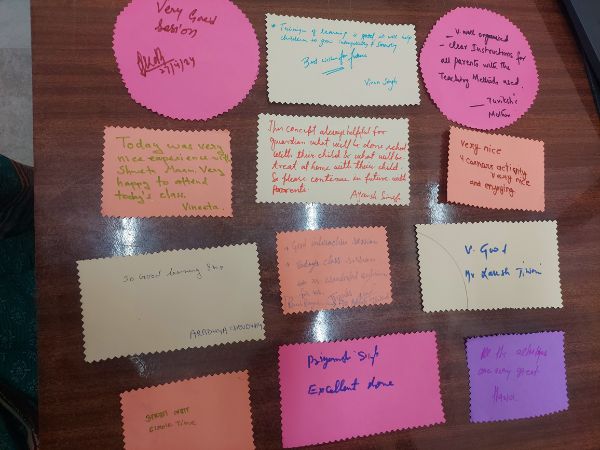 Very Good
session
27/4/24
Technique of learning is good it will help
children to gain
Best wishes for future
Viran Singh
- V. well organized
- clear Instructions for
all parents with the
Teaching Methods used.
Mother
Today was very
nice experience with
Shweta Maam. Very
happy to attend
today's class.
Vineeta.
This concept always helpful for
guardian what will be done school
with their child & what will be
treat at home with their child.
So please continue in future with
parents.
Ayansh Singh
very nice
& canvas activity
very nice
and engaging.
So Good learning
ARADHYA CHOUDHARY
+ Good interactive session
+ Today's class session
was wonderful
for
V. Good
Mr
Priyamvd Singh
Excellent done
All the activities
are very great
अच्छा लगा
Time